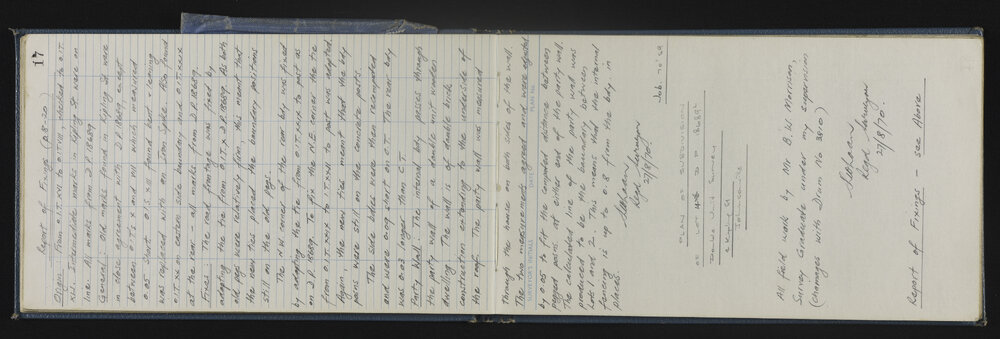 17
Report of Fixings (D.8-20)
Origin From O.I.T. XXI to O.I.T. VIII, checked to O.I.T.
XXI. Intermediate marks in Kipling St were on
line. All marks from D.P. 18689.
General: Old marks found in Kipling St were
in close agreement with D.P. 18689, except
between O.I.T. X and VIII which measured
0.05 short. O.I.S. II found bent & leaning
was replaced with an Iron Spike. Also found
O.I.T. XX on eastern side boundary and O.I.T. XXX
at the rear - all marks from D.P. 18689.
Fixes The road frontage was fixed by
adopting the tie from O.I.T. X D.P. 18689. As both
old pegs were relatively firm, this meant that
the new ties placed the boundary positions
still on the old pegs.
The N.W. corner of the rear bdy was fixed
by adopting the tie from O.I.T. XXX to post as
on D.P. 18689. To fix the N.E. corner the tie
from O.I.T. XXX to O.I.T. XXII to post was adopted.
Again, the new ties meant that the bdy
points were still on the concrete posts.
The side bdies were then recomputed
and were 0.09 short on C.T. The rear bdy
was 0.03 longer than C.T.
Party Wall - The internal bdy passes through
the party wall of a double unit wooden
dwelling. The wall is of double brick
construction extending to the underside of
the roof. The party wall was measured
through the house on both sides of the wall.
The two measurements agreed and were adjusted
by 0.05 to fit the computed distance between
pegged positions at either end of the party wall.
The calculated line of the party wall was
produced to be the boundary between
Lots 1 and 2. This means that the internal
fencing is up to 0.8 from the bdy. in
places.
Regd. Surveyor
27/8/70.
Job 70/69
PLAN OF SUBDIVISION
OF LOT
Double Unit Survey
Kipling St
All field work by Mr B. W. Morrison,
Survey Graduate under my supervision
(Chainages with Drum No 38.0)
Regd. Surveyor
27/8/70.
Report of Fixings - see Above